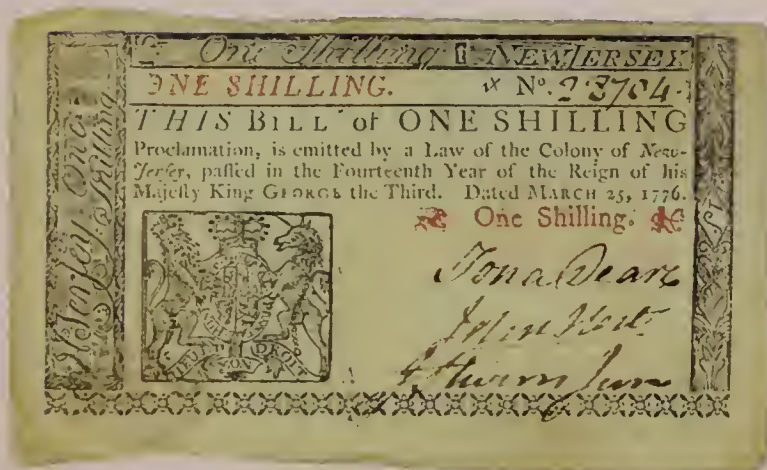 One Shilling NEW JERSEY
ONE SHILLING. No. 23704
THIS BILL of ONE SHILLING
Proclamation, is emitted by a Law of the Colony of New-
Jersey, passed in the Fourteenth Year of the Reign of his
Majesty King GEORGE the Third. Dated MARCH 25, 1776.
One Shilling.
Jona Deare
John
Jun
DIEU ET MON DROIT
N Jersey One
Shilling